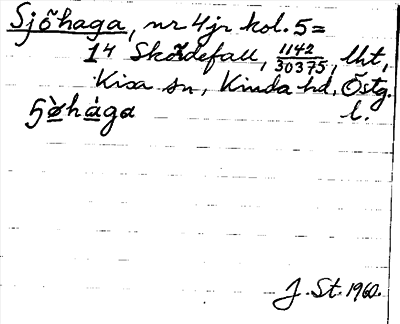 Sjöhaga, nr 4 jr kol. 5 =
1⁴ Skördefall, 1142/30375, lht,
Kisa sn, Kinda hd, Östg.
l.
ʃö̀hága
J. St. 1960.